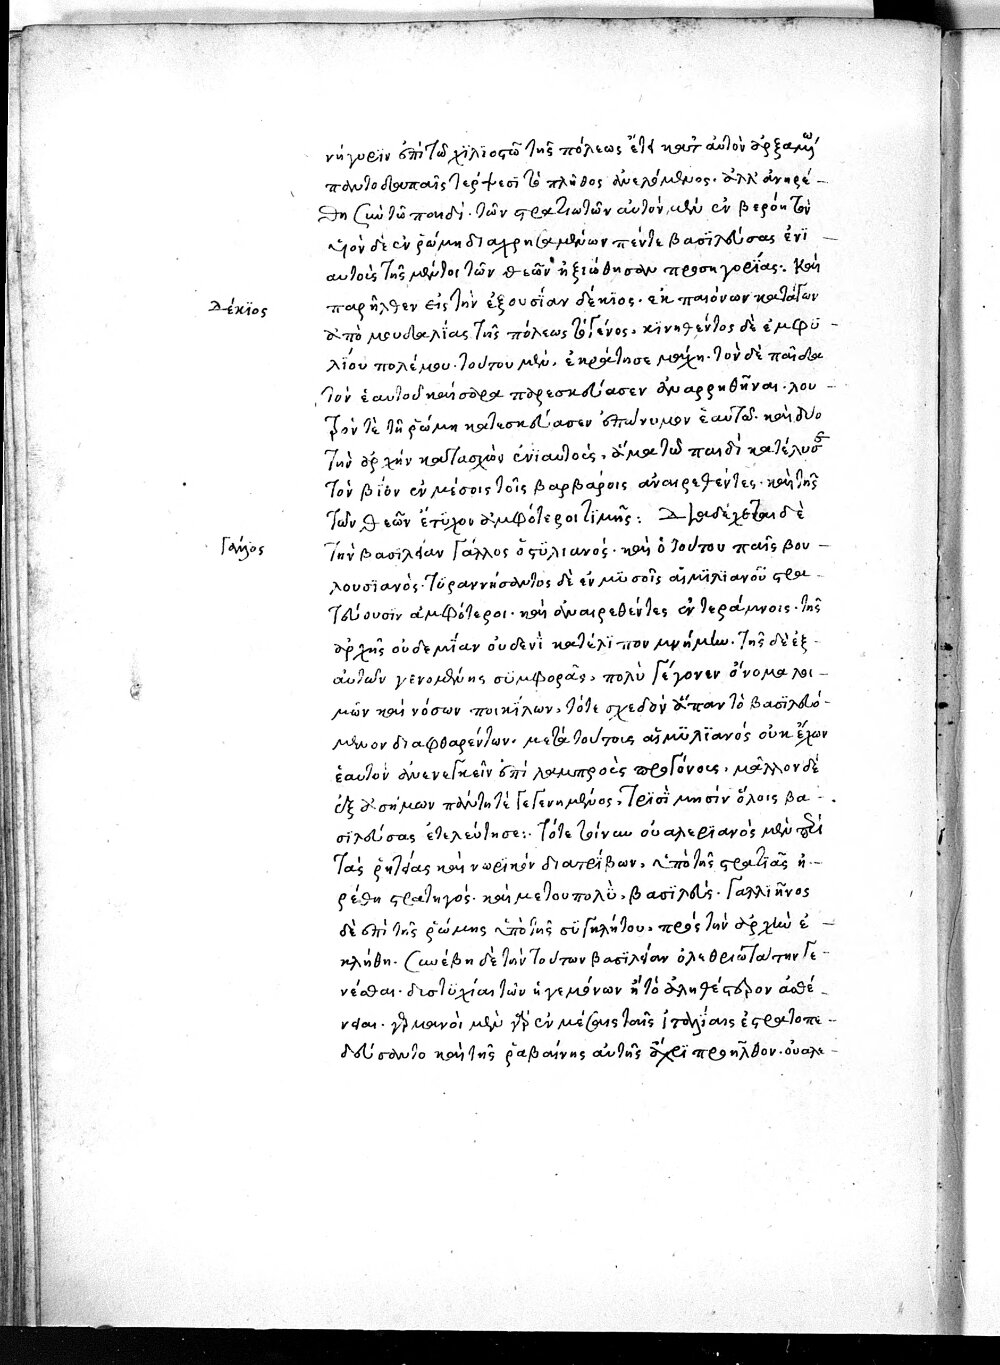 νήγυριν ἐπὶ τῶ χιλιοστῶ τῆς πόλεως ἔτει κατ' αὐτὸν ἀρξαμένω
παντοδαπαῖς τέρψεσι τὸ πλῆθος ἀνελόμενος. ἀλλ' ἀνηρέ-
θη σὺν τῶ παιδὶ. τῶν στρατιωτῶν αὐτὸν μὲν ἐν βερόη τὸν
υἱὸν δὲ ἐν ῥώμη διαχρησαμένων πέντε βασιλεύσας ἐνι
αυτοὺς τῆς μέντοι τῶν θεῶν ἠξιώθησαν προσηγορίας: Καὶ
Δέκϊος
παρῆλθεν εἰς τὴν ἐξουσίαν δέκιος. ἐκ παιόνων κατάγων
ἀπὸ μουδαλίας τῆς πόλεως τὸ γένος, κινηθέντος δὲ ἐμφυ-
λίου πολέμου. τούτου μὲν, ἐκράτησε μάχη. τὸν δὲ παῖδα
τὸν ἑαυτοῦ καίσαρα παρεσκεύασεν ἀναρρηθῆναι. λου-
τρόν τε τῆ ῥώμη κατεσκεύασεν ἐπώνυμον ἑαυτῶ. καὶ δυο
τὴν ἀρχὴν κατασχὼν ἐνιαυτοὺς, ἅμα τῶ παιδὶ κατέλυσε
τὸν βίον ἐν μέσοις τοῖς βαρβάροις ἀναιρεθέντες. καὶ τῆς
τῶν θεῶν ἔτυχον ἀμφότεροι τιμῆς: Διαδέχεται δὲ
Γάλλος
τὴν βασιλείαν Γάλλος ὁστυλιανός. καὶ ὁ τούτου παῖς βου-
λουσϊανός. τυραννήσαντος δὲ ἐν μυσοῖς αἰμιλιανοῦ στρα-
τεύουσιν ἀμφότεροι. καὶ ἀναιρεθέντες ἐν τεράμνοις. τῆς
ἀρχῆς οὐδεμίαν οὐδενὶ κατέλιπον μνήμην. τῆς δὲ ἐξ-
αὐτῶν γενομένης συμφορᾶς, πολὺ γέγονεν ὄνομα λοι-
μῶν καὶ νόσων ποικίλων, τότε σχεδὸν ἅπαν τὸ βασιλευό-
μενον διαφθαρέντων. μετὰ τούτους αἰμυλϊανός οὐκ ἔχων
ἑαυτὸν ἀνενεγκεῖν ἐπὶ λαμπροὺς προγόνους, μᾶλλον δὲ
ἐξ ἀσήμων πάντη τὲ γεγενημένος, τρισὶ μησὶν ὅλοις βα-
σιλεύσας ἐτελεύτησε: Τότε τοίνυν οὐαλεριανὸς μὲν περὶ
τὰς ῥητίας καὶ νωρικὸν διατρίβων, ὑπὸ τῆς στρατιᾶς ἡ-
ρέθη στρατηγός. καὶ μετουπολὺ, βασιλεύς. Γαλλιῆνος
δὲ ἐπὶ τῆς ῥώμης ὑπὸ τῆς συγκλήτου, πρὸς τὴν ἀρχὴν ἐ-
κλήθη. συνέβη δὲ τὴν τούτων βασιλείαν ὀλεθριωτάτην γε-
νέσθαι. δυστυχίαι τῶν ἡγεμόνων ἢ τὸ ἀληθέστερον ἀσθε-
νείαι. γερμανοὶ μὲν γὰρ ἐν μέσαις ταῖς ἰταλίαις ἐστρατοπε-
δεύσαντο καὶ τῆς ῥαβαίνης αὐτῆς ἄχρι προῆλθον. οὐαλε-